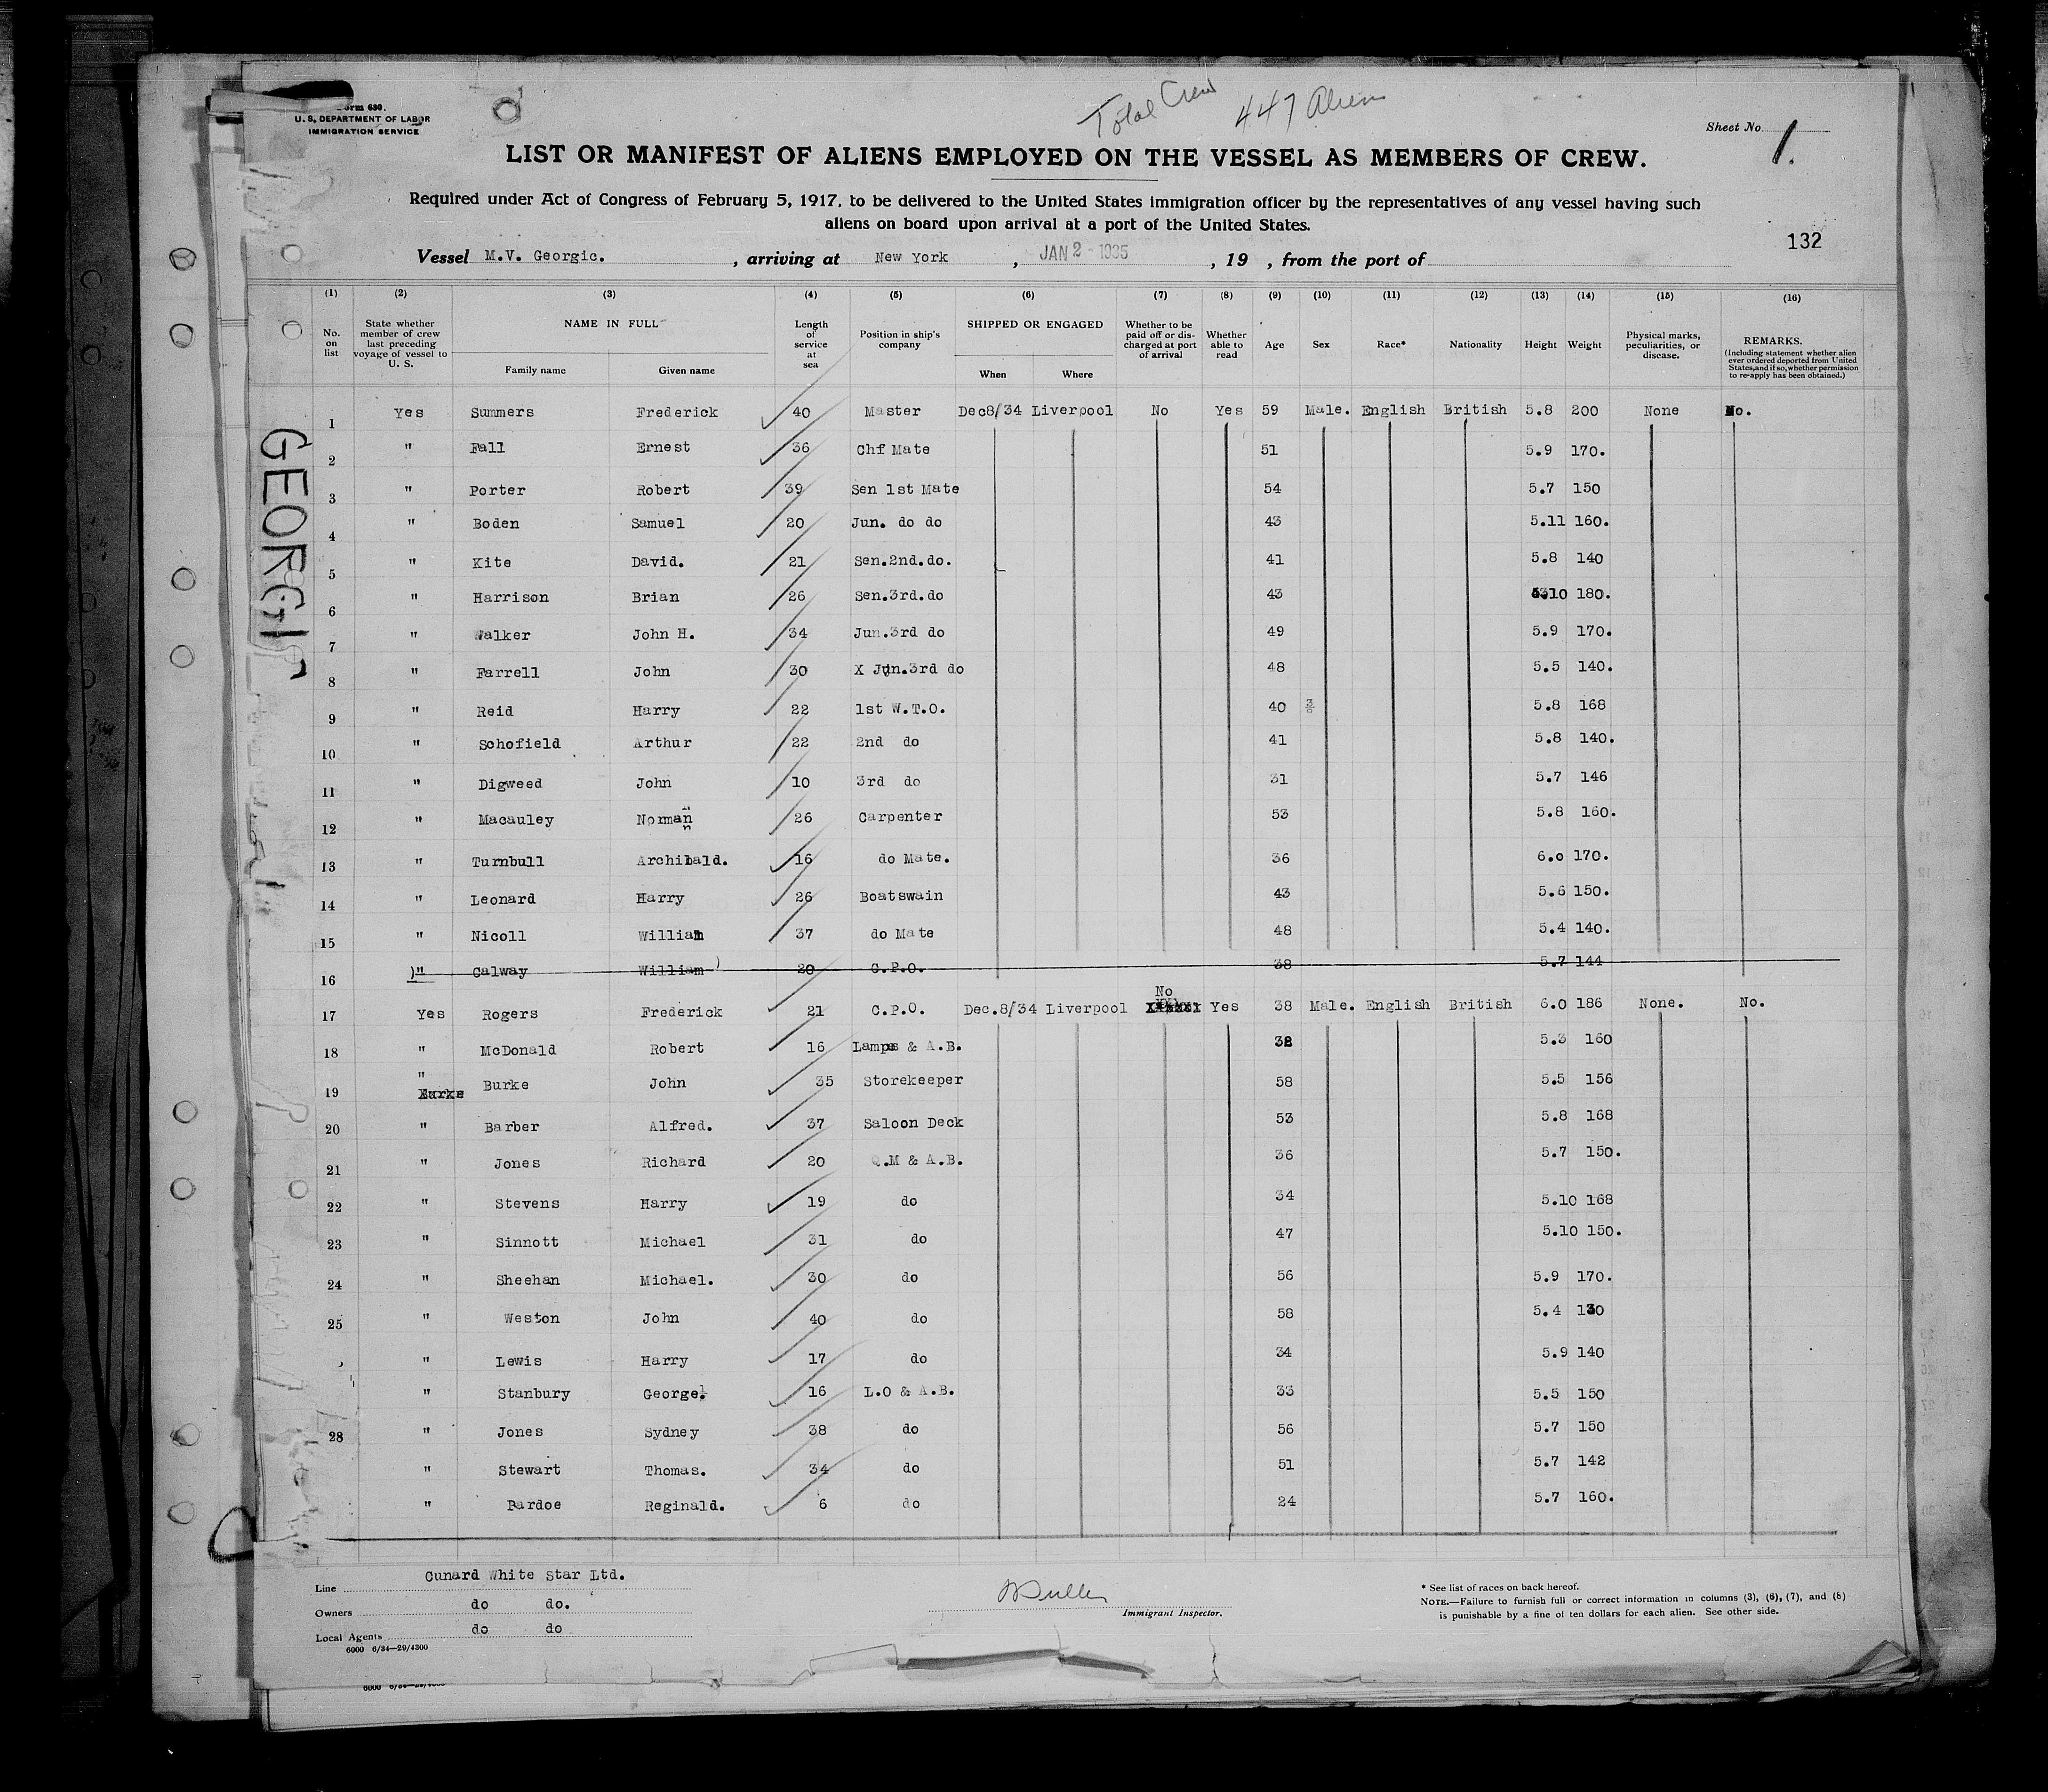 Total Crew 447 Aliens
Form 680.
U. S. DEPARTMENT OF LABOR
IMMIGRATION SERVICE
Sheet No. 1.
LIST OR MANIFEST OF ALIENS EMPLOYED ON THE VESSEL AS MEMBERS OF CREW.
Required under Act of Congress of February 5, 1917, to be delivered to the United States immigration officer by the representatives of any vessel having such
aliens on board upon arrival at a port of the United States.
132
Vessel M.V. Georgic. , arriving at New York , JAN 2 - 1935 , 19 , from the port of
(1) (2) (3) (4) (5) (6) (7) (8) (9) (10) (11) (12) (13) (14) (15) (16)
No. on list
State whether member of crew last preceding voyage of vessel to U. S.
NAME IN FULL
Family name
Given name
Length of service at sea
Position in ship's company
SHIPPED OR ENGAGED
When
Where
Whether to be paid off or discharged at port of arrival
Whether able to read
Age
Sex
Race*
Nationality
Height
Weight
Physical marks, peculiarities, or disease.
REMARKS.
(Including statement whether alien ever ordered deported from United States, and if so, whether permission to re-apply has been obtained.)
GEORGIC
1 Yes Summers Frederick 40 Master Dec8/34 Liverpool No Yes 59 Male. English British 5.8 200 None No.
2 " Fall Ernest 36 Chf Mate 51 5.9 170.
3 " Porter Robert 39 Sen 1st Mate 54 5.7 150
4 " Boden Samuel 20 Jun. do do 43 5.11 160.
5 " Kite David. 21 Sen.2nd.do. 41 5.8 140
6 " Harrison Brian 26 Sen.3rd.do 43 5.10 180.
7 " Walker John H. 34 Jun.3rd do 49 5.9 170.
8 " Farrell John 30 X Jun.3rd do 48 5.5 140.
9 " Reid Harry 22 1st W.T.O. 40 5.8 168
10 " Schofield Arthur 22 2nd do 41 5.8 140.
11 " Digweed John 10 3rd do 31 5.7 146
12 " Macauley Norman 26 Carpenter 53 5.8 160.
13 " Turnbull Archibald. 16 do Mate. 36 6.0 170.
14 " Leonard Harry 26 Boatswain 43 5.6 150.
15 " Nicoll William 37 do Mate 48 5.4 140.
16 )" Calway William ) 20 C.P.O. 38 5.7 144
17 Yes Rogers Frederick 21 C.P.O. Dec.8/34 Liverpool No Yes 38 Male. English British 6.0 186 None. No.
18 " McDonald Robert 16 Lamps & A.B. 38 5.3 160
19 " Burke Burke John 35 Storekeeper 58 5.5 156
20 " Barber Alfred. 37 Saloon Deck 53 5.8 168
21 " Jones Richard 20 Q.M & A.B. 36 5.7 150.
22 " Stevens Harry 19 do 34 5.10 168
23 " Sinnott Michael 31 do 47 5.10 150.
24 " Sheehan Michael. 30 do 56 5.9 170.
25 " Weston John 40 do 58 5.4 130
" Lewis Harry 17 do 34 5.9 140
" Stanbury George. 16 L.O & A.B. 33 5.5 150
28 " Jones Sydney 38 do 56 5.7 150
" Stewart Thomas. 34 do 51 5.7 142
" Pardoe Reginald. 6 do 24 5.7 160.
Line Cunard White Star Ltd.
Owners do do.
Local Agents do do
6000 6/34—29/4300
Immigrant Inspector.
* See list of races on back hereof.
NOTE.—Failure to furnish full or correct information in columns (3), (6), (7), and (8)
is punishable by a fine of ten dollars for each alien. See other side.